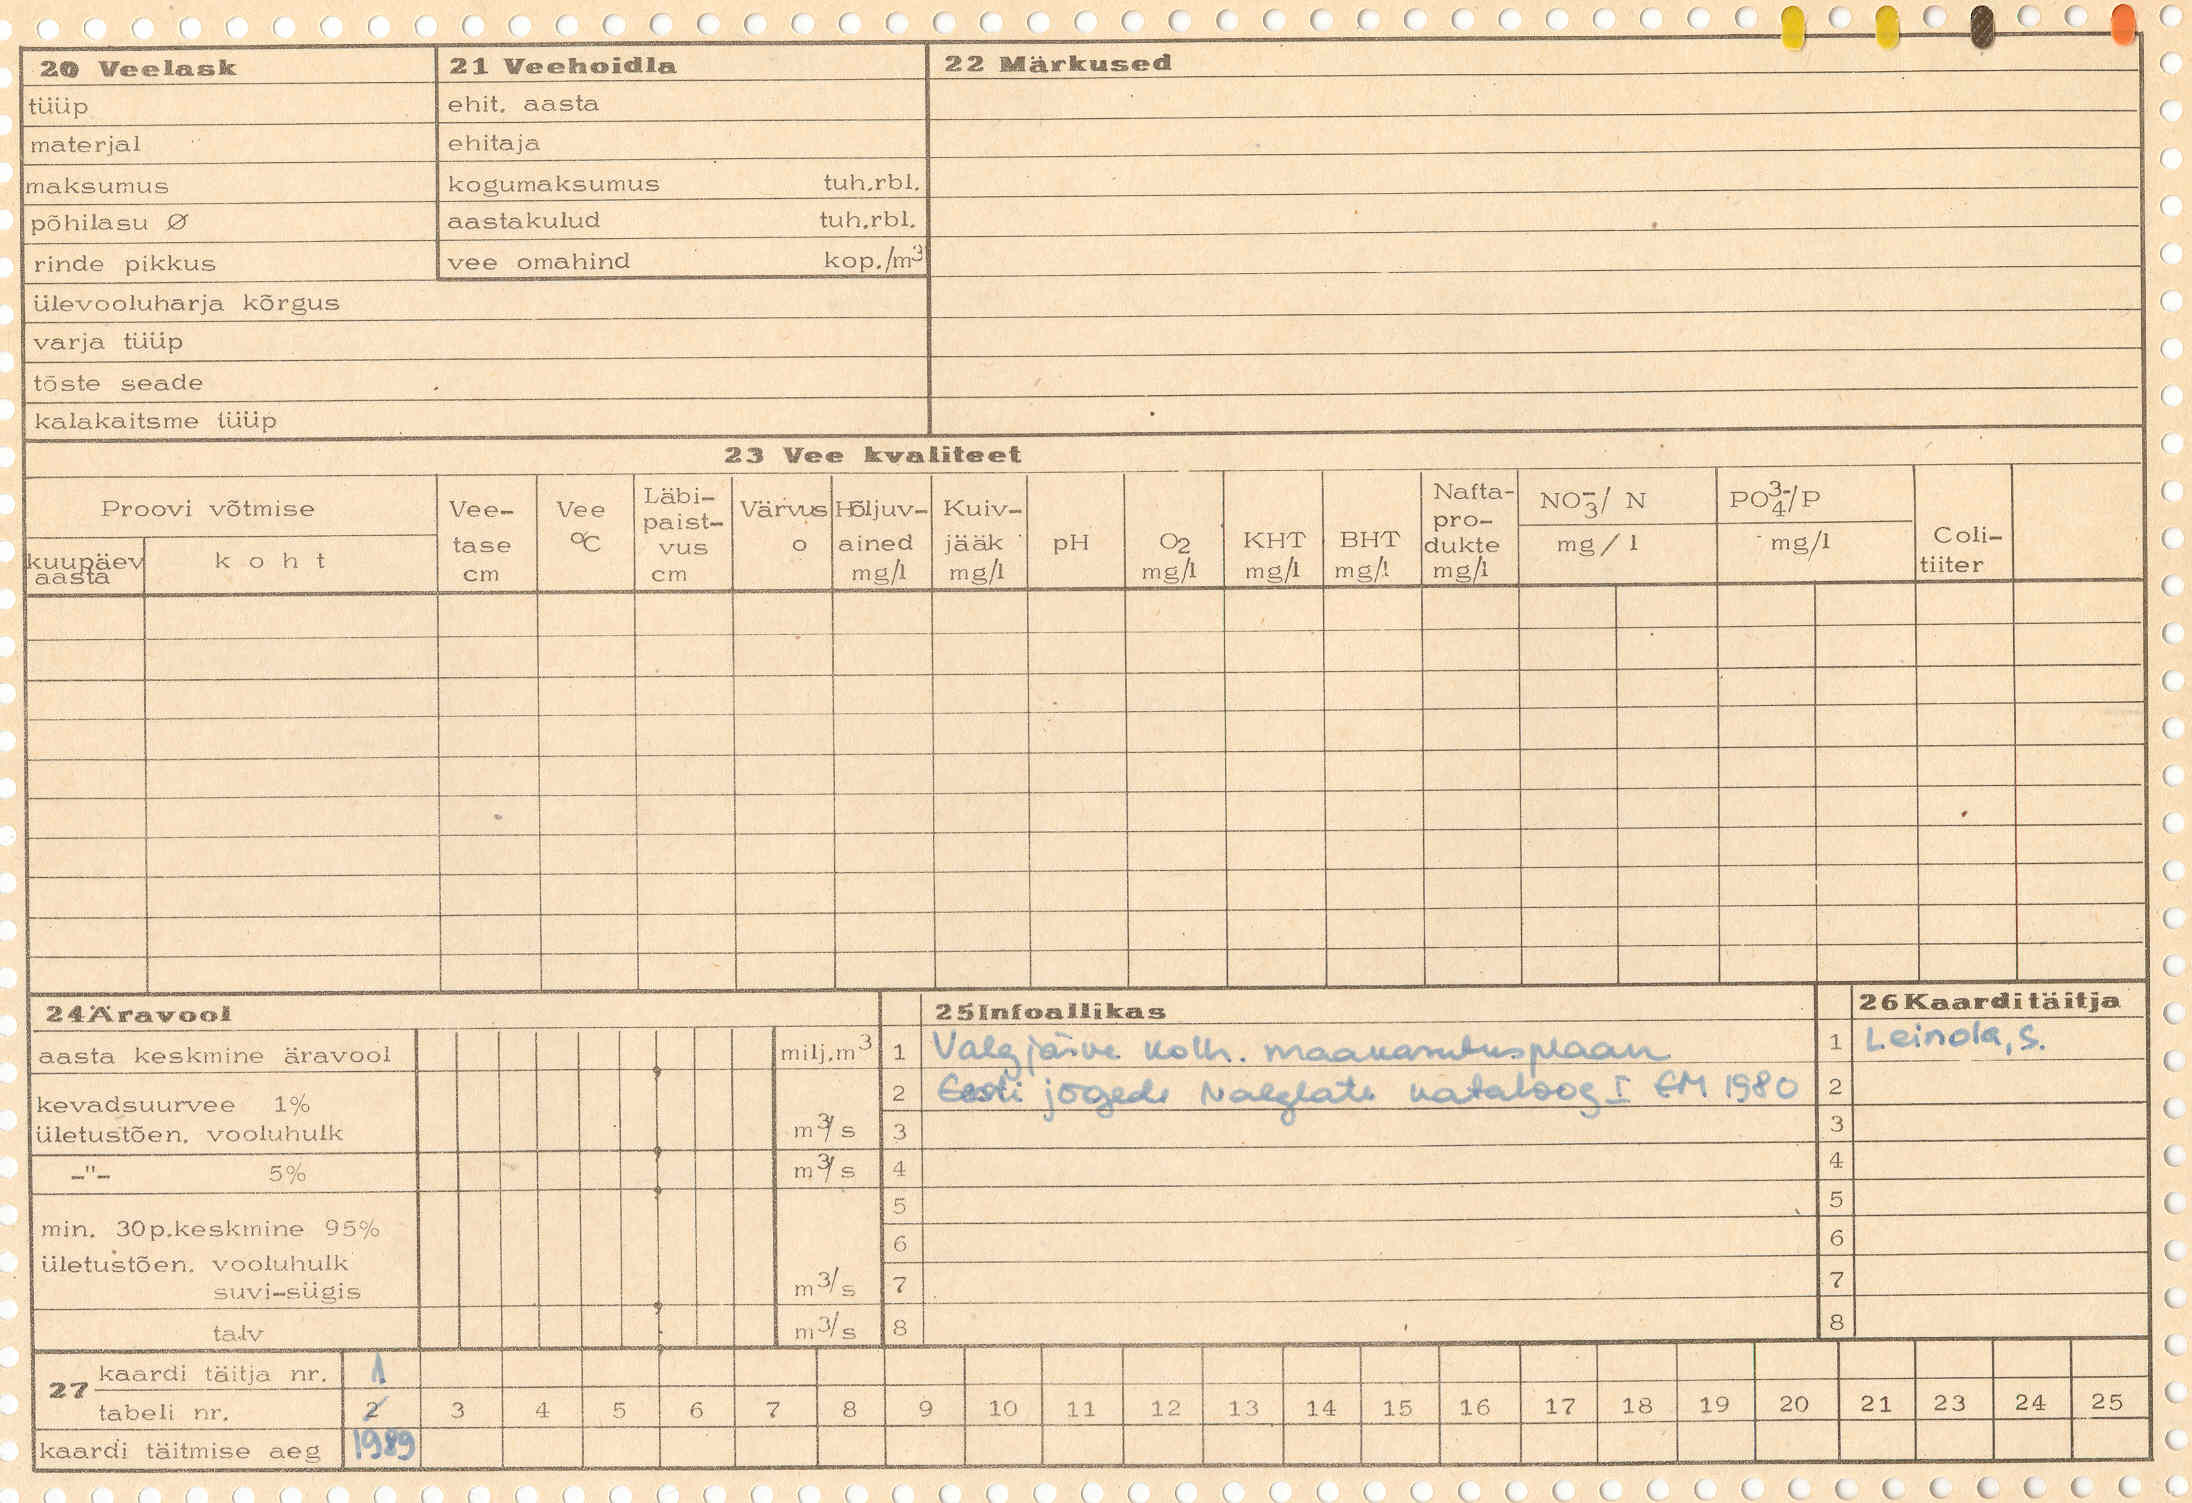 20 Veelask
tüüp
materjal
maksumus
põhilasu Ø
rinde pikkus
ülevooluharja kõrgus
varja tüüp
tõste seade
kalakaitsme tüüp
21 Veehoidla
ehit. aasta
ehitaja
kogumaksumus tuh.rbl.
aastakulud tuh.rbl.
vee omahind kop./m³
22 Märkused
23 Vee kvaliteet
Proovi võtmise
kuupäev aasta
koht
Vee-
tase
cm
Vee
°C
Läbi-
paist-
vus
cm
Värvus
o
Hõljuv-
ained
mg/l
Kuiv-
jääk
mg/l
pH
O2
mg/l
KHT
mg/l
BHT
mg/l
Nafta-
pro-
dukte
mg/l
NO3-/ N
mg/l
PO4 3-/P
mg/l
Coli-
tiiter
24 Äravool
aasta keskmine äravool milj.m³
kevadsuurvee 1%
ületustõen. vooluhulk m³/s
-"- 5% m³/s
min. 30p.keskmine 95%
ületustõen. vooluhulk
suvi-sügis m³/s
talv m³/s
25 Infoallikas
1 Valgjärve kolh. maakasutusplaan
2 Eesti jõgede valglate kataloog I EM 1980
3
4
5
6
7
8
26 Kaarditäitja
1 Leinola, S.
2
3
4
5
6
7
8
27
kaardi täitja nr. 1
tabeli nr. 2 3 4 5 6 7 8 9 10 11 12 13 14 15 16 17 18 19 20 21 23 24 25
kaardi täitmise aeg 1989